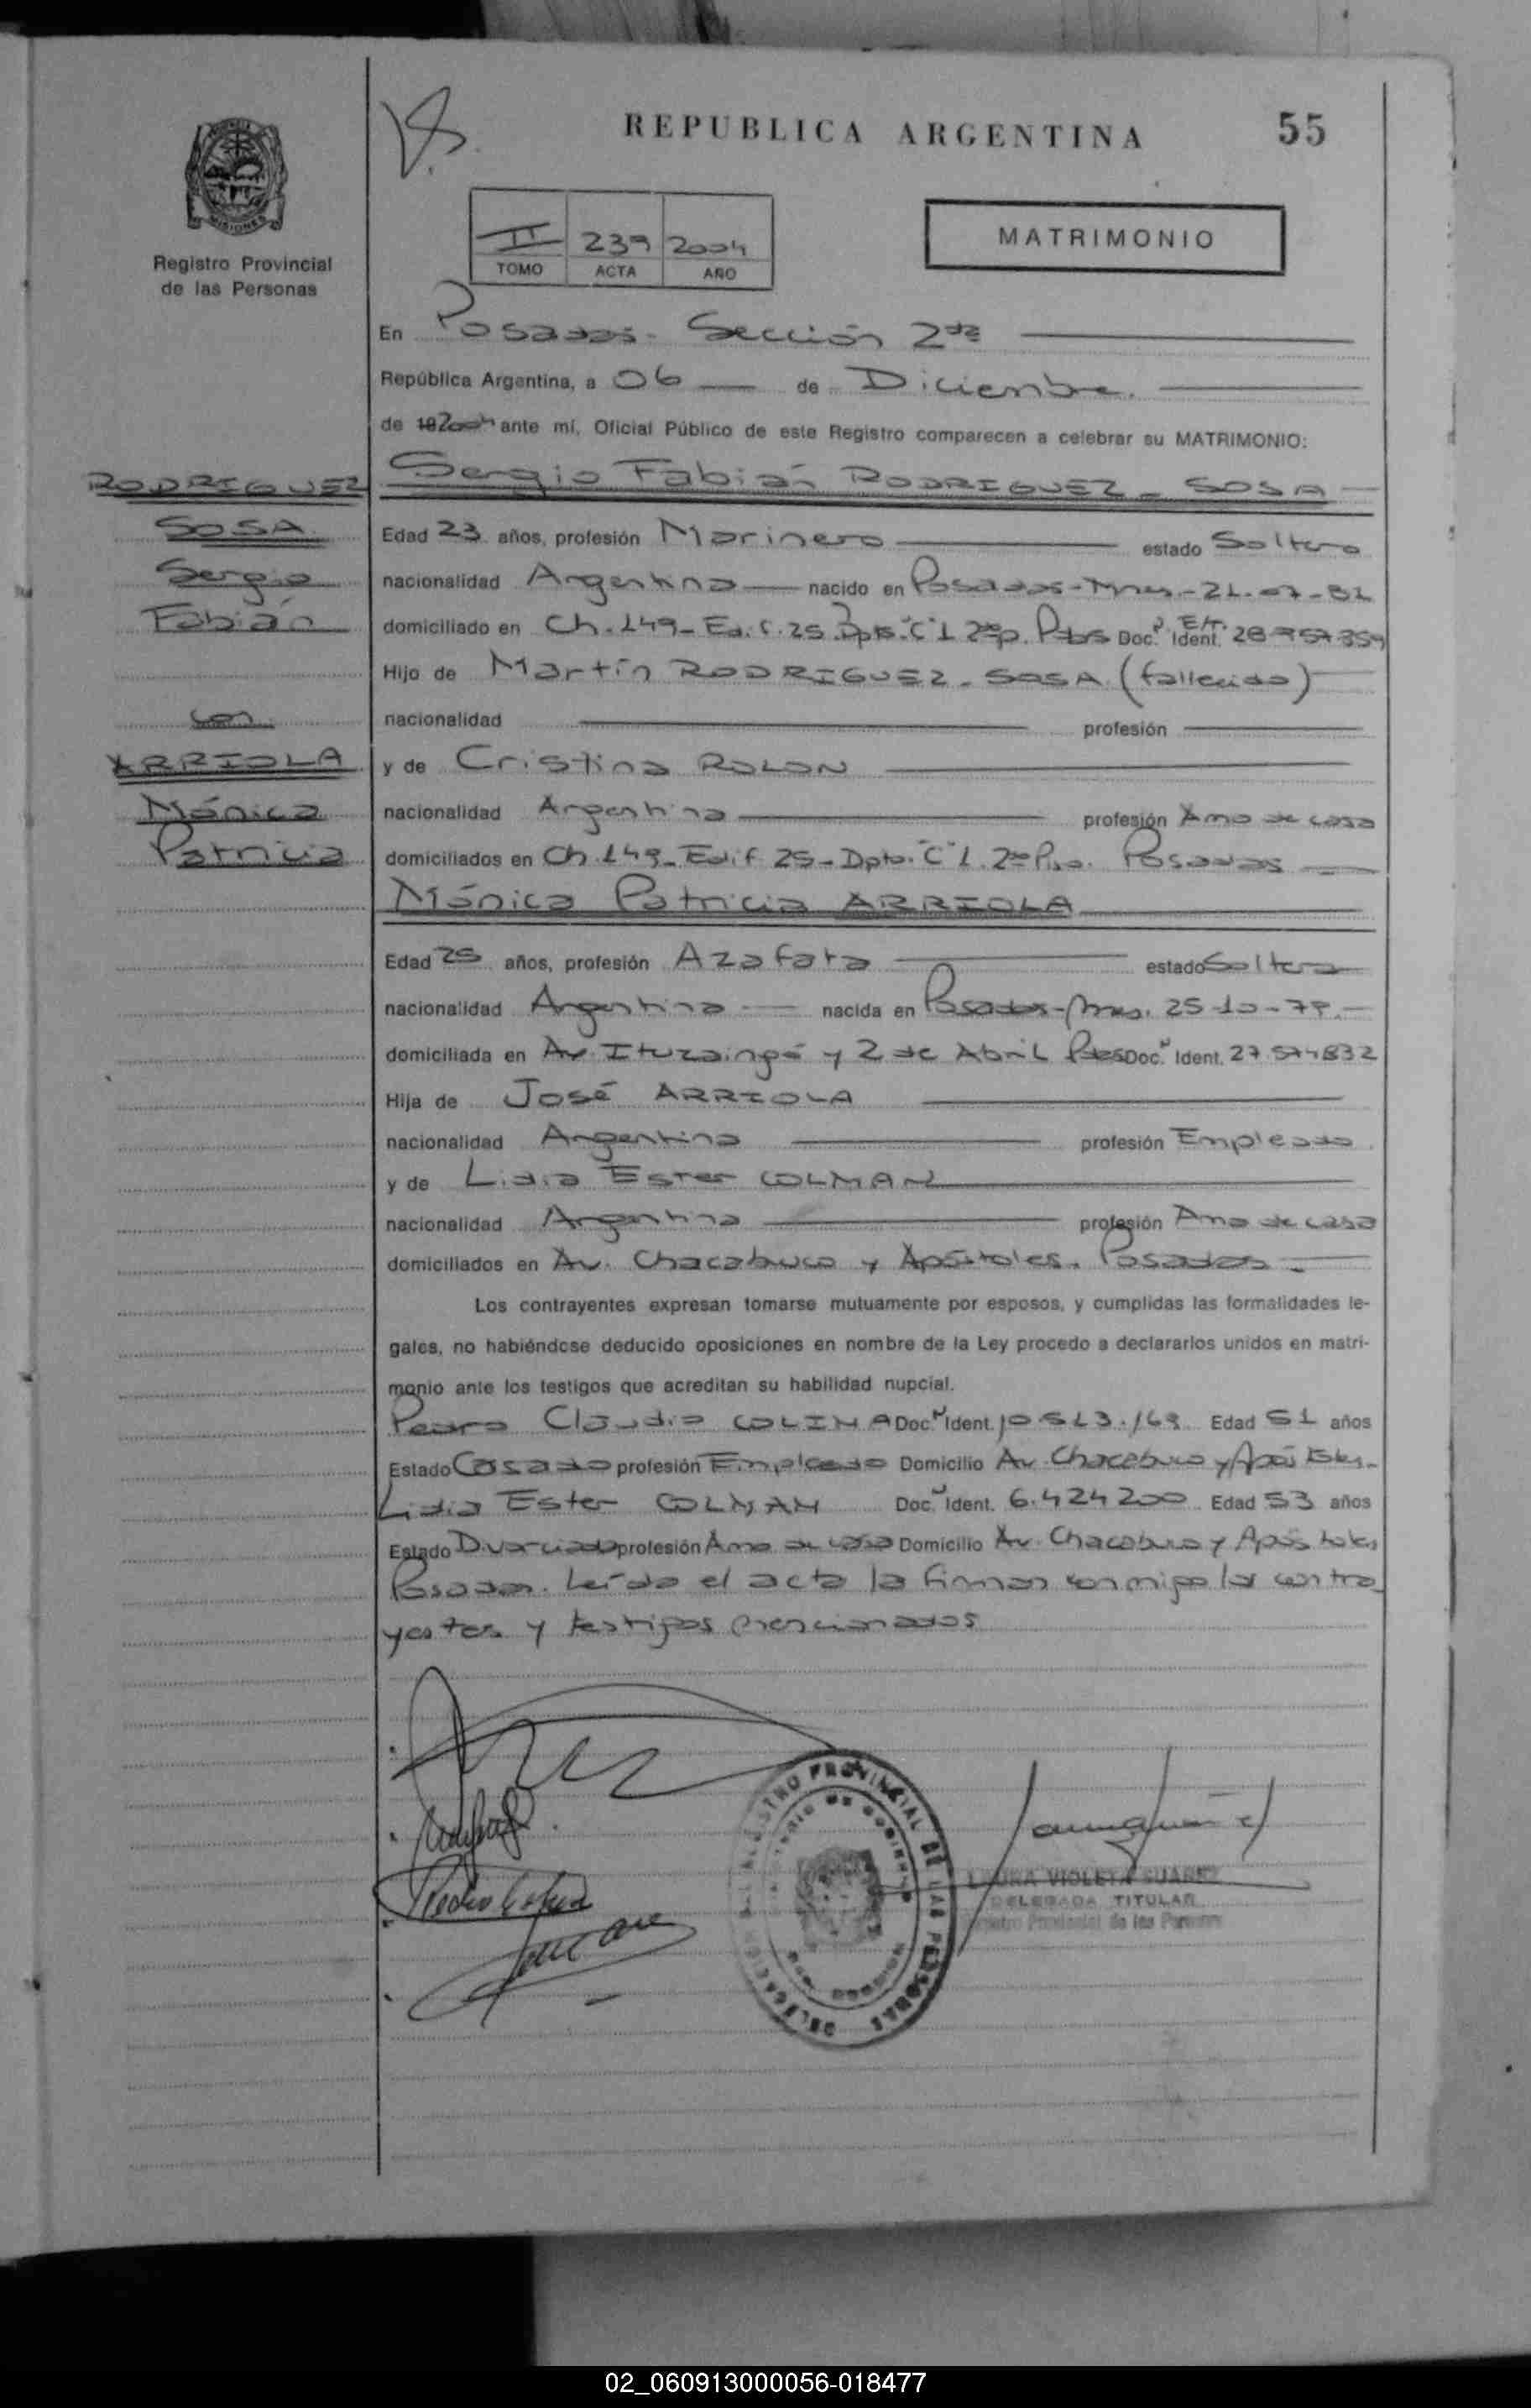 REPUBLICA ARGENTINA
55
MISIONES
Registro Provincial
de las Personas
II 239 2004
TOMO ACTA AÑO
MATRIMONIO
En Posadas - Sección 2da
República Argentina, a 06 de Diciembre.
de 192004 ante mí, Oficial Público de este Registro comparecen a celebrar su MATRIMONIO:
RODRIGUEZ
SOSA
Sergio
Fabián
con
ARRIOLA
Mónica
Patricia
Sergio Fabián RODRIGUEZ - SOSA
Edad 23 años, profesión Marinero estado Soltero
nacionalidad Argentina nacido en Posadas - Mnes - 21-07-81
domiciliado en Ch. 149 - Edif. 25 Dpto. "C" 1 2do p. Pdas Doc. Ident. 28 957 359
Hijo de Martín RODRIGUEZ - SOSA (fallecido)
nacionalidad profesión
y de Cristina ROLON
nacionalidad Argentina profesión Ama de casa
domiciliados en Ch. 149 - Edif. 25 - Dpto. "C" 1. 2do Piso. Posadas
Mónica Patricia ARRIOLA
Edad 25 años, profesión Azafata estado Soltera
nacionalidad Argentina nacida en Posadas - Mnes. 25-10-79.-
domiciliada en Av. Ituzaingó y 2 de Abril Pdas Doc. Ident. 27.574832
Hija de José ARRIOLA
nacionalidad Argentina profesión Empleado
y de Lidia Ester COLMAN
nacionalidad Argentina profesión Ama de casa
domiciliados en Av. Chacabuco y Apóstoles. Posadas.-
Los contrayentes expresan tomarse mutuamente por esposos, y cumplidas las formalidades le-
gales, no habiéndose deducido oposiciones en nombre de la Ley procedo a declararlos unidos en matri-
monio ante los testigos que acreditan su habilidad nupcial.
Pedro Claudio COLINA Doc. Ident. 10.513.169 Edad 51 años
Estado Casado profesión Empleado Domicilio Av. Chacabuco y Apóstoles.
Lidia Ester COLMAN Doc. Ident. 6.424200 Edad 53 años
Estado Divorciada profesión Ama de casa Domicilio Av. Chacabuco y Apóstoles
Posadas. Leída el acta la firman conmigo los contra
yentes y testigos mencionados
REGISTRO PROVINCIAL DE LAS PERSONAS
DELEGACION
LAURA VIOLETA SUAREZ
DELEGADA TITULAR
Registro Provincial de las Personas
02_060913000056-018477